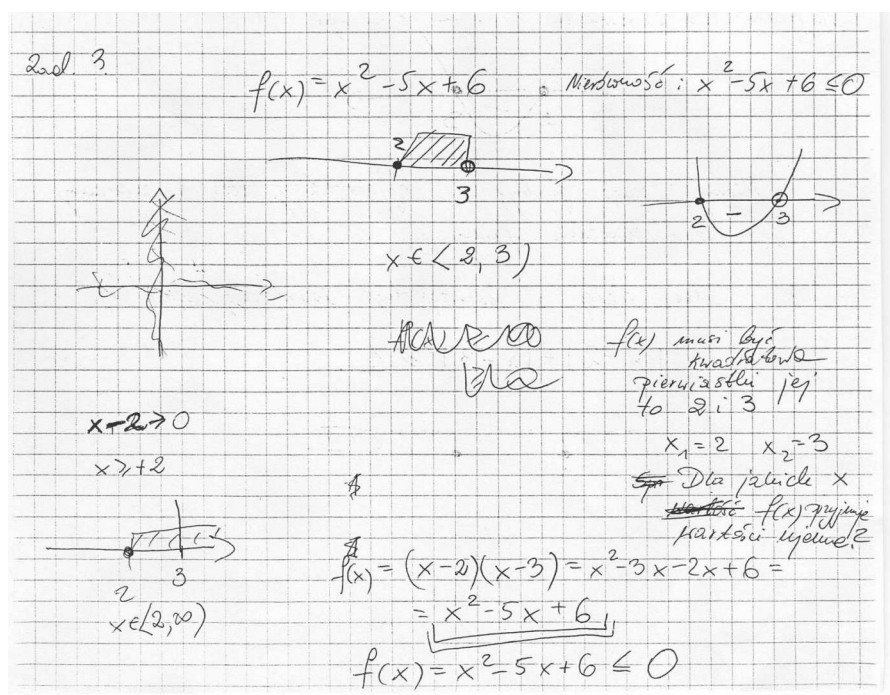 Zad. 3.
f(x) = x² - 5x + 6
Nierówność : x² - 5x + 6 ≤ 0
2
3
2 - 3
x ∈ < 2, 3 )
f(x) musi być
kwadratowa
pierwiastki jej
to 2 i 3
x - 2 ≥ 0
x ≥ +2
x₁ = 2 x₂ = 3
Dla jakich x
f(x) przyjmuje
wartości ujemne?
2 3
x ∈ < 2, ∞ )
f(x) = (x-2)(x-3) = x² - 3x - 2x + 6 =
= x² - 5x + 6
f(x) = x² - 5x + 6 ≤ 0